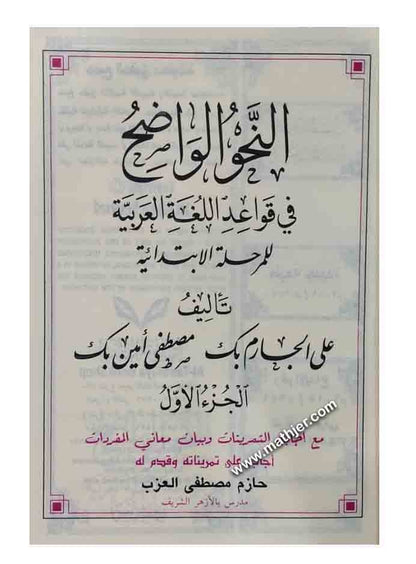 النَّحْوُ الوَاضِحُ
في قَوَاعِدِ اللُّغَةِ العَرَبِيَّةِ
للمرحلة الابتدائية
تَأليفُ
علي الجارم بك مصطفى أمين بك
الجُزءُ الأوّلُ
مع التمرينات وبيان معاني المفردات
على تمريناته وقدم له
حازم مصطفى العزب
مدرس بالأزهر الشريف
www.mathjer.com